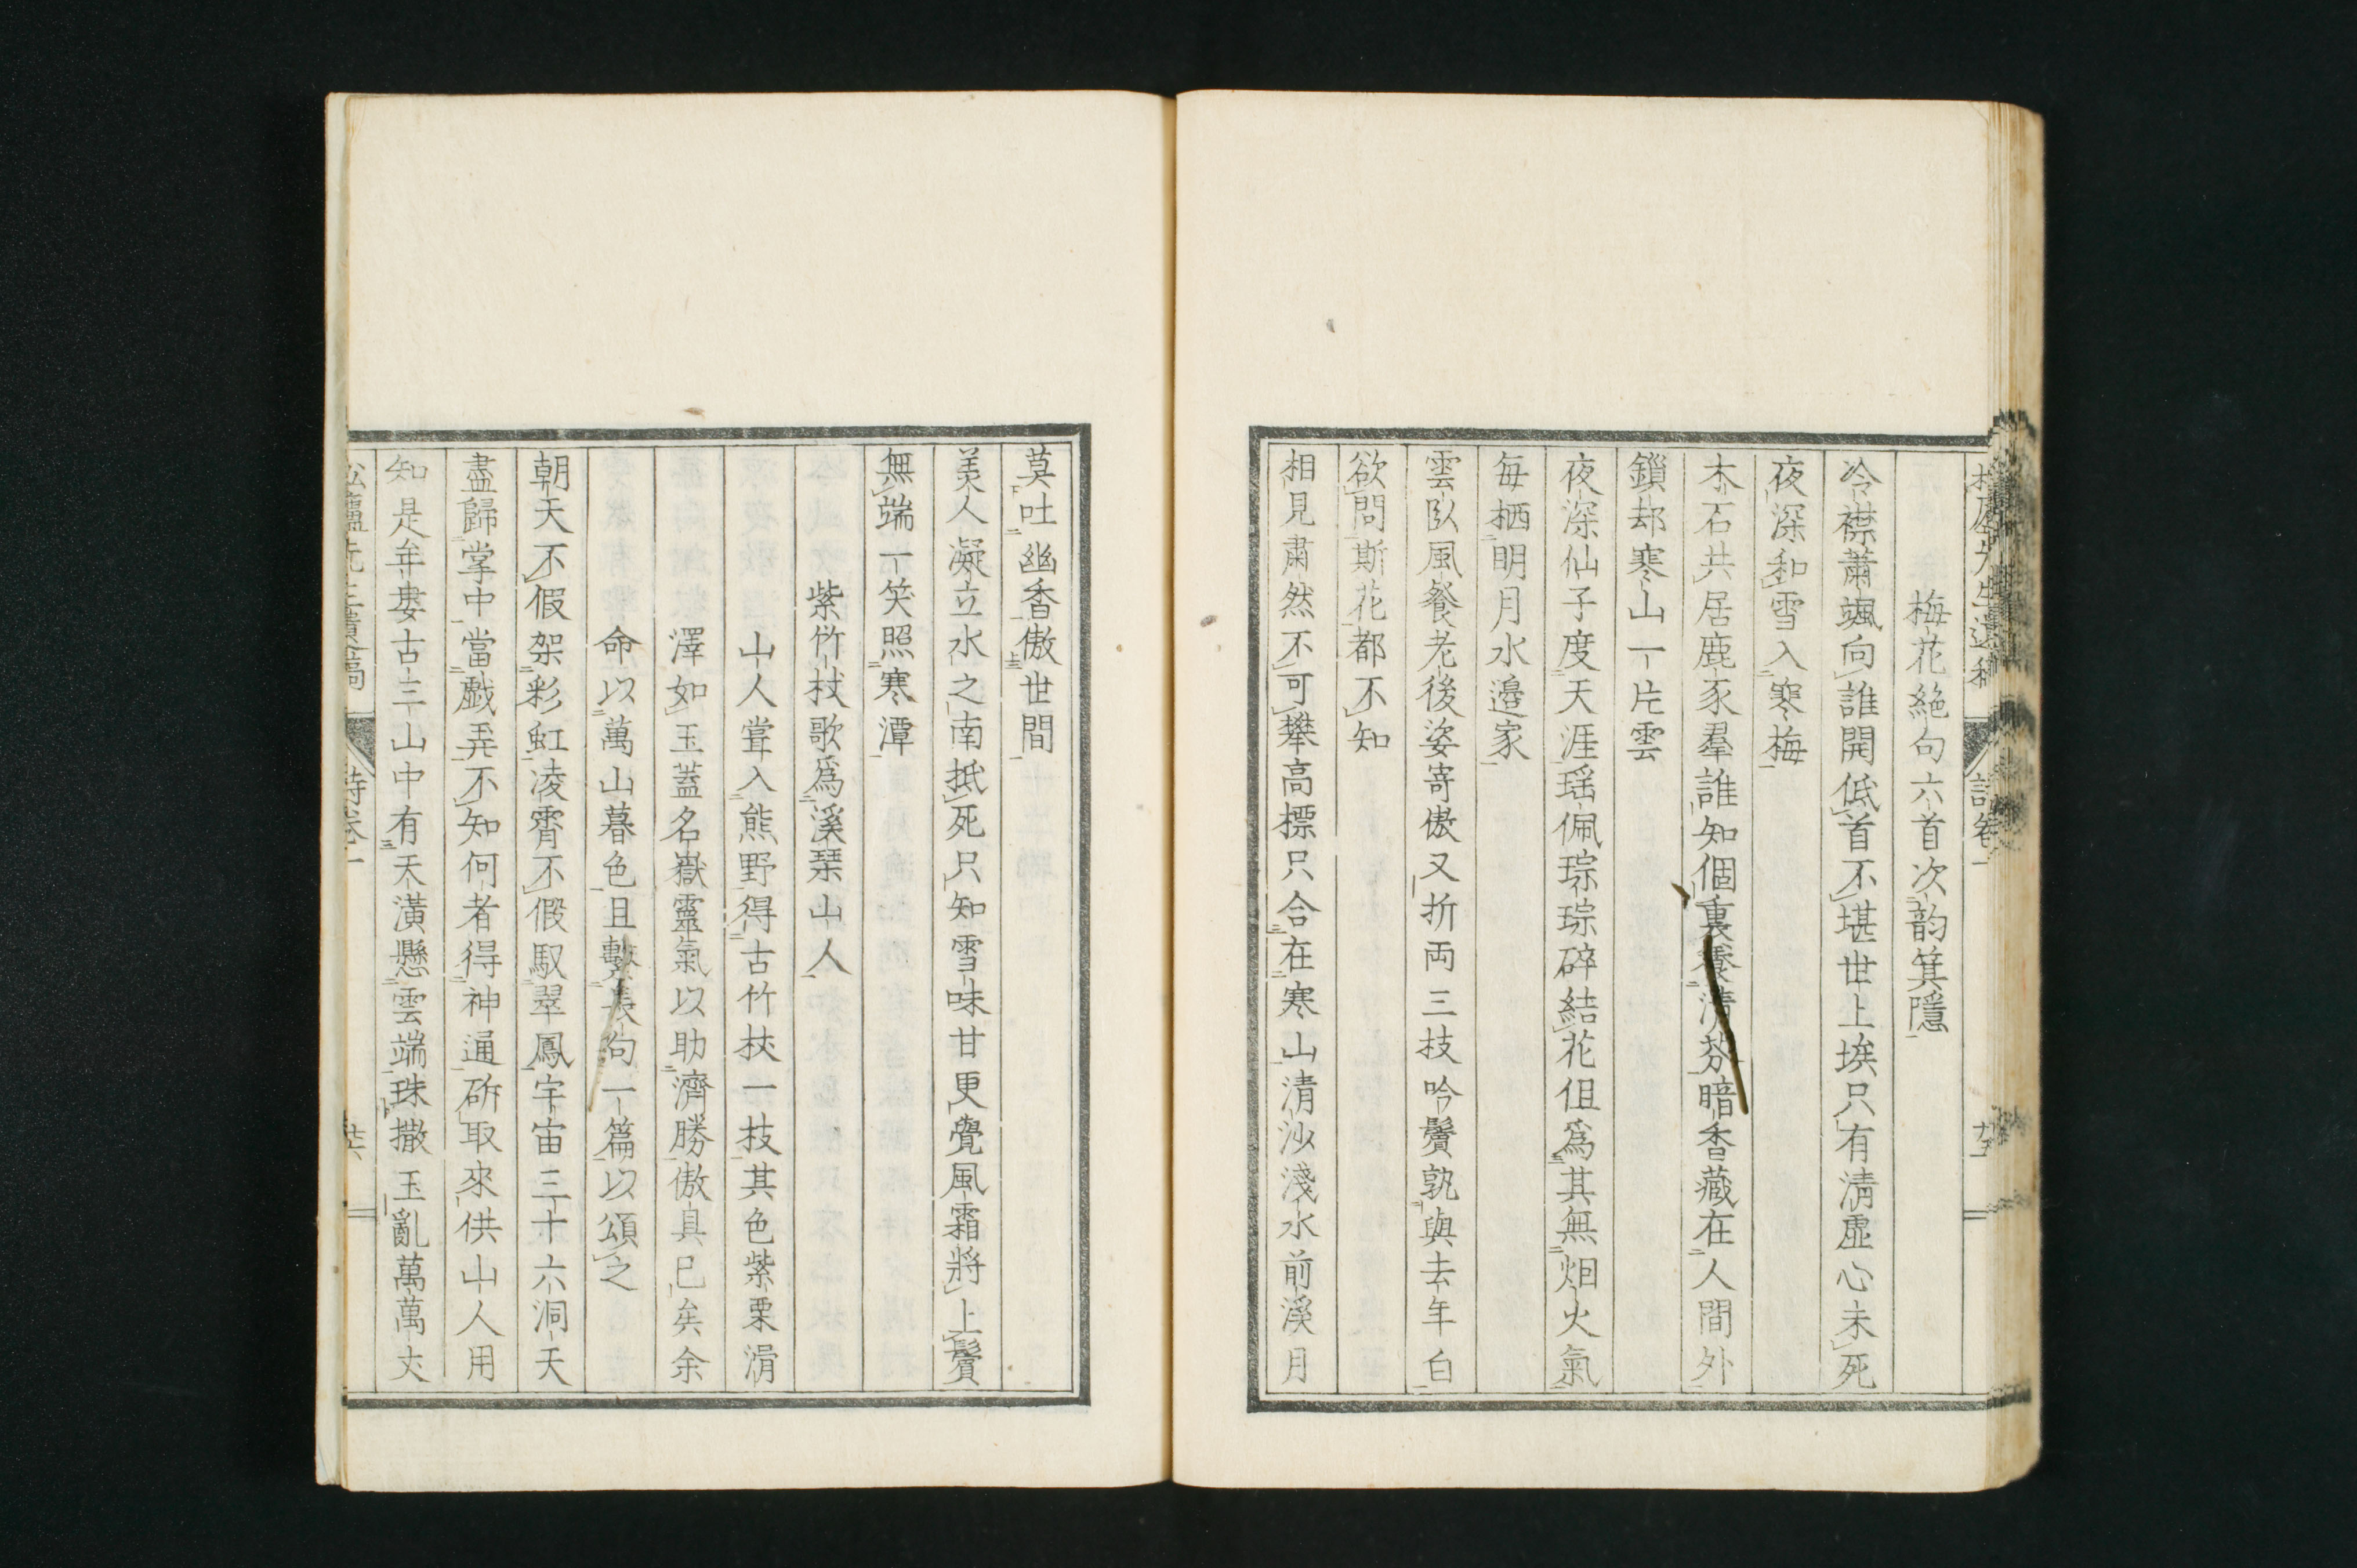 梅花絶句六首次韵箕隱
冷襟蕭颯向誰開低首不堪世上埃只有清虛心未死
夜深和雪入寒梅
木石共居鹿豕羣誰知個裏養清芬暗香藏在人間外
鎖却寒山一片雲
夜深仙子度天涯瑶佩琮琮碎結花但爲其無烟火氣
每栖明月水邊家
雲臥風餐老後姿寄傲又折両三枝吟鬢孰與去年白
欲問斯花都不知
相見肅然不可攀高標只合在寒山清沙淺水前溪月
莫吐幽香傲世間
美人凝立水之南抵死只知雪味甘更覺風霜將上鬢
無端一笑照寒潭
紫竹杖歌爲溪琹山人
山人嘗入熊野得古竹杖一枝其色紫栗滑
澤如玉蓋名嶽靈氣以助濟勝傲具已矣余
命以萬山暮色且繫長句一篇以頌之
朝天不假架彩虹凌霄不假馭翠鳳宇宙三十六洞天
盡歸掌中當戯弄不知何者得神通斫取來供山人用
知是牟婁古三山中有天潢懸雲端珠撒玉亂萬萬丈
詩卷一